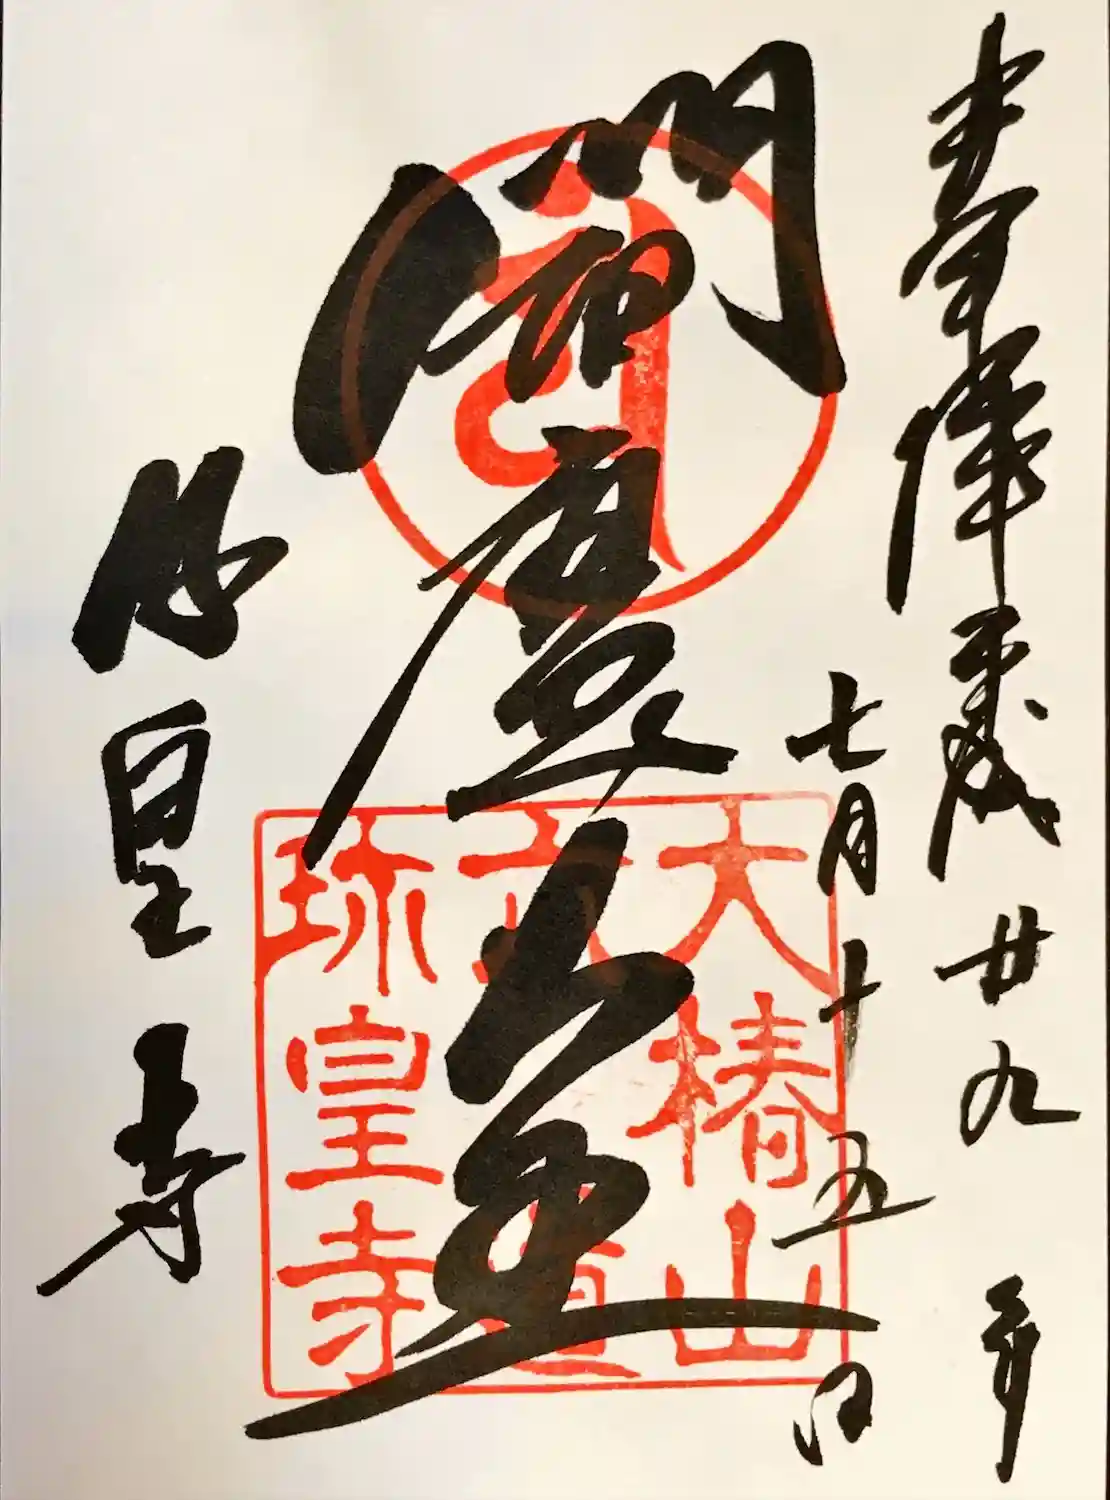 奉拝
平成廿九年
七月十五日
閻魔大王
大椿山
六道
珎皇寺
珎皇寺